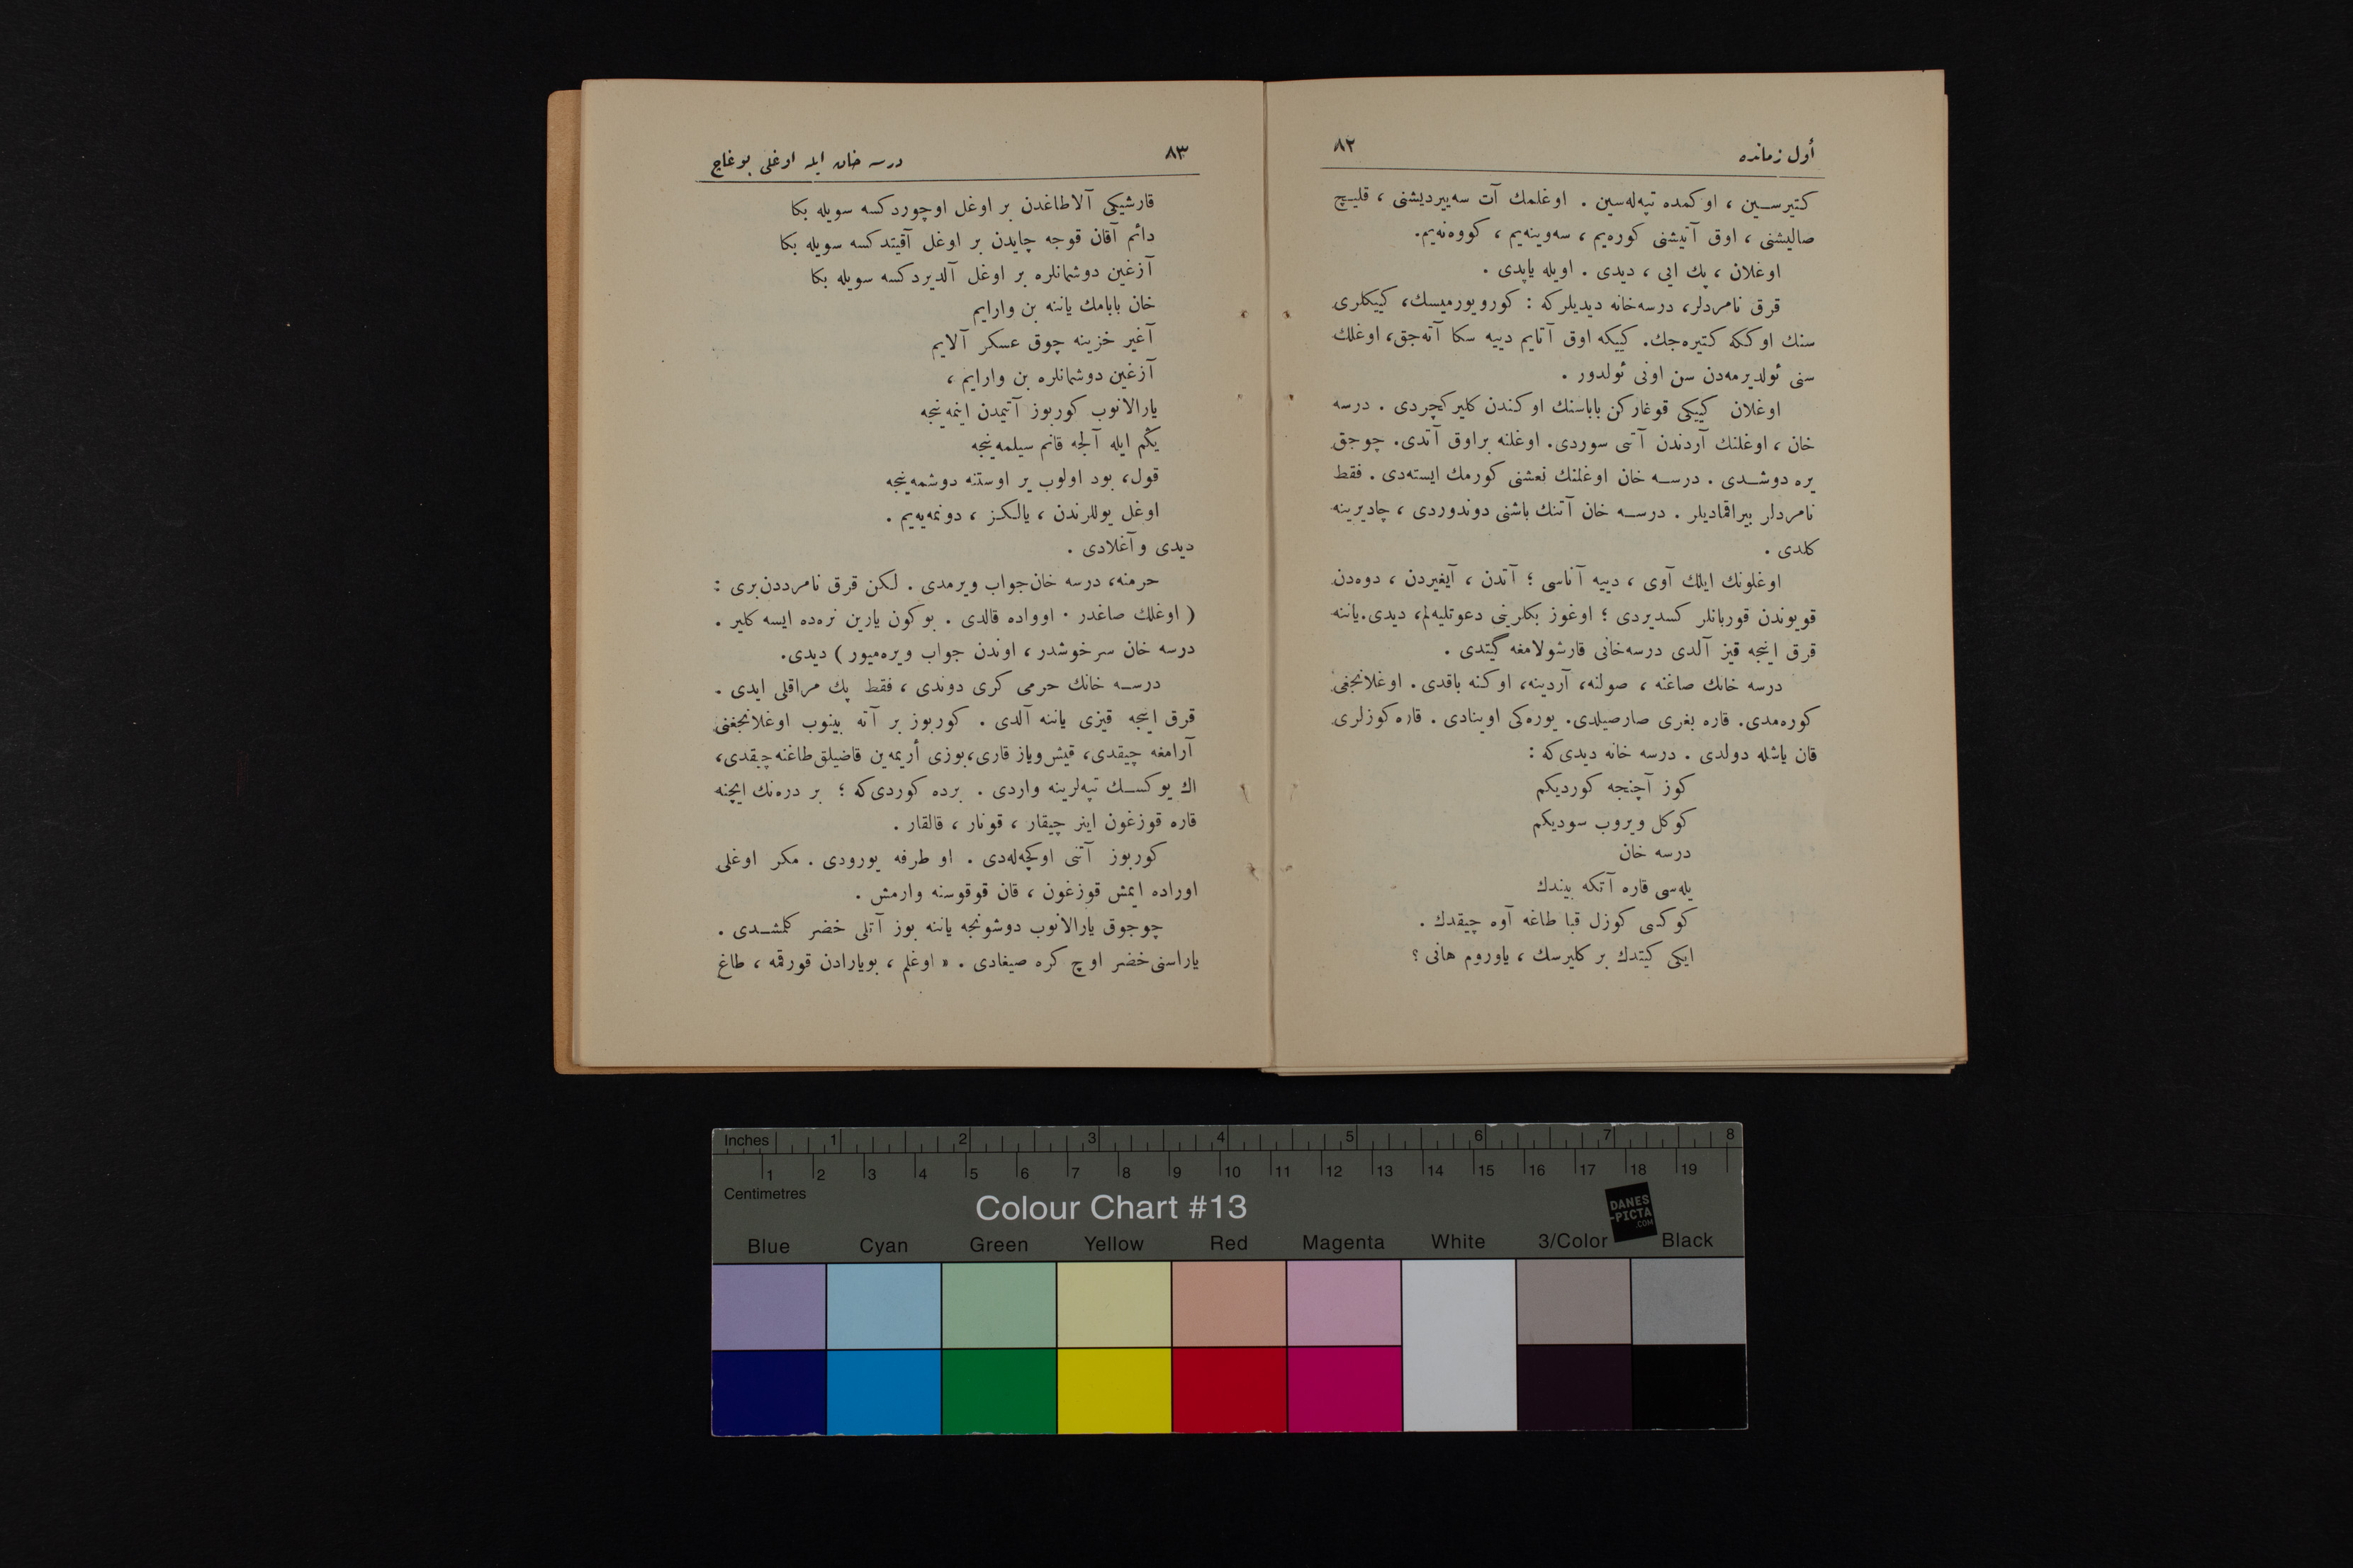 أول زمانده ٨٢
كتیرسین ، اوكمده تپه‌له‌سین . اوغلمك آت سه‌ییردیشنی ، قلیچ
صالیشنی ، اوق آتیشنی كوره‌یم ، سه‌وینه‌یم ، كووه‌نه‌یم.
اوغلان ، پك ایی ، دیدی . اویله یاپدی .
قرق نامردلر، درسه‌خانه دیدیلركه : كورویورمیسك، كییكلری
سنك اوككه كتیره‌جك. كییكه اوق آتایم دییه سكا آته‌جق، اوغلك
سنی ئولدیرمه‌دن سن اونی ئولدور .
اوغلان كییكی قوغاركن باباسنك اوكندن كلیركچردی . درسه
خان ، اوغلنك آردندن آتی سوردی. اوغلنه براوق آتدی. چوجق
یره دوشدی . درسه خان اوغلنك نعشنی كورمك ایسته‌دی . فقط
نامردلر بیراقمادیلر . درسه خان آتنك باشنی دوندوردی ، چادیرینه
كلدی .
اوغلونك ایلك آوی ، دییه آناسی ؛ آتدن ، آیغیردن ، دوه‌دن
قویوندن قوربانلر كسدیردی ؛ اوغوز بكلرینی دعوتلیه‌لم، دیدی.یاننه
قرق اینجه قیز آلدی درسه‌خانی قارشولامغه گیتدی .
درسه خانك صاغنه ، صولنه، آردینه، اوكنه باقدی . اوغلانجغی
كوره‌مدی. قاره بغری صارصیلدی. یوره‌كی اوینادی . قاره كوزلری
قان یاشله دولدی . درسه خانه دیدی‌كه :
كوز آچنجه كوردیكم
كوكل ویروب سودیكم
درسه خان
یله‌سی قاره آتكه بیندك
كوكسی كوزل قبا طاغه آوه چیقدك .
ایكی كیتدك بر كلیرسك ، یاوروم هانی ؟
٨٣ درسه خان ایله اوغلی بوغاچ
قارشیكی آلاطاغدن بر اوغل اوچوردكسه سویله بكا
دائم آقان قوجه چایدن بر اوغل آقیتدكسه سویله بكا
آزغین دوشمانلره بر اوغل آلدیردكسه سویله بكا
خان بابامك یاننه بن وارایم
آغیر خزینه چوق عسكر آلایم
آزغین دوشمانلره بن وارایم ،
یارالانوب كوربوز آتیمدن اینمه‌ینجه
یكم ایله آلجه قانم سیلمه‌ینجه
قول، بود اولوب یر اوستنه دوشمه‌ینجه
اوغل یوللرندن ، یالكز ، دونمه‌یه‌یم .
دیدی وآغلادی .
حرمنه، درسه خان‌جواب ویرمدی . لكن قرق نامرددن‌بری :
( اوغلك صاغدر . اوواده قالدی . بوكون یارین نره‌ده ایسه كلیر .
درسه خان سرخوشدر ، اوندن جواب ویره‌میور ) دیدی.
درسه خانك حرمی كری دوندی ، فقط پك مراقلی ایدی .
قرق اینجه قیزی یاننه آلدی . كوربوز بر آته بینوب اوغلانجغنی
آرامغه چیقدی، قیش‌ویاز قاری،بوزی أریمه‌ین قاضیلق‌طاغنه‌چیقدی،
اك یوكسك تپه‌لرینه واردی . برده كوردی‌كه ؛ بر دره‌نك ایچنه
قاره قوزغون اینر چیقار ، قونار ، قالقار .
كوربوز آتنی اوكچه‌له‌دی . او طرفه یورودی . مكر اوغلی
اوراده ایمش قوزغون ، قان قوقوسنه وارمش .
چوجوق یارالانوب دوشونجه یاننه بوز آتلی خضر كلمشدی .
یاراسنی‌خضر اوچ كره صیغادی . « اوغلم ، بویارادن قورقمه ، طاغ
Inches 1 2 3 4 5 6 7 8
1 2 3 4 5 6 7 8 9 10 11 12 13 14 15 16 17 18 19
Centimetres
Colour Chart #13
DANES
-PICTA
.COM
Blue Cyan Green Yellow Red Magenta White 3/Color Black